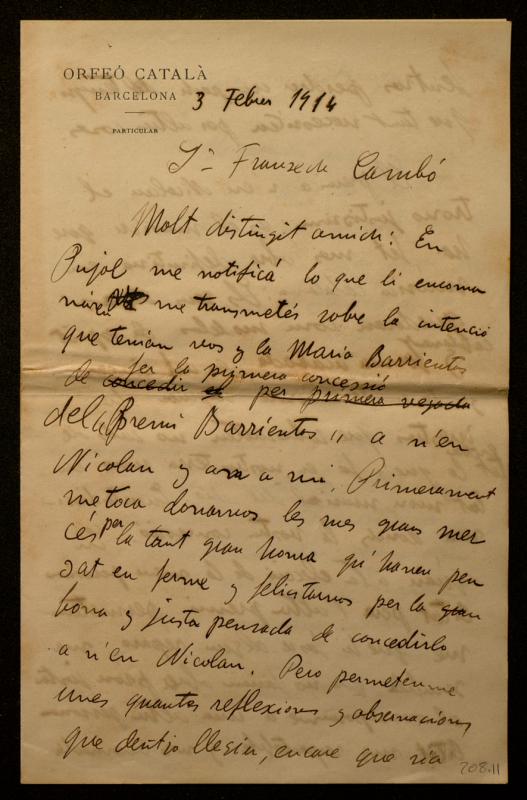 ORFEÓ CATALÀ
BARCELONA
PARTICULAR
3 Febrer 1914
Sr Francesch Cambó
Molt distingit amich: En
Pujol me notificá lo que li encoma
náren me transmetés sobre la intenció
que tenian vos y la Maria Barrientos
de fer la primera concessió
concedir el per primera vegada
del Premi Barrientos" a n'en
Nicolau y a mi. Primerament
me toca donarvos les mes grans mer
cés per la tant gran honra qu' haveu pen
sat en ferme y felicitarvos per la gran
bona y justa pensada de concedirlo
a n'en Nicolau. Pero permeteume
unes quantes reflexions y observacions
que dentro llegiu, encare que sia
208.11